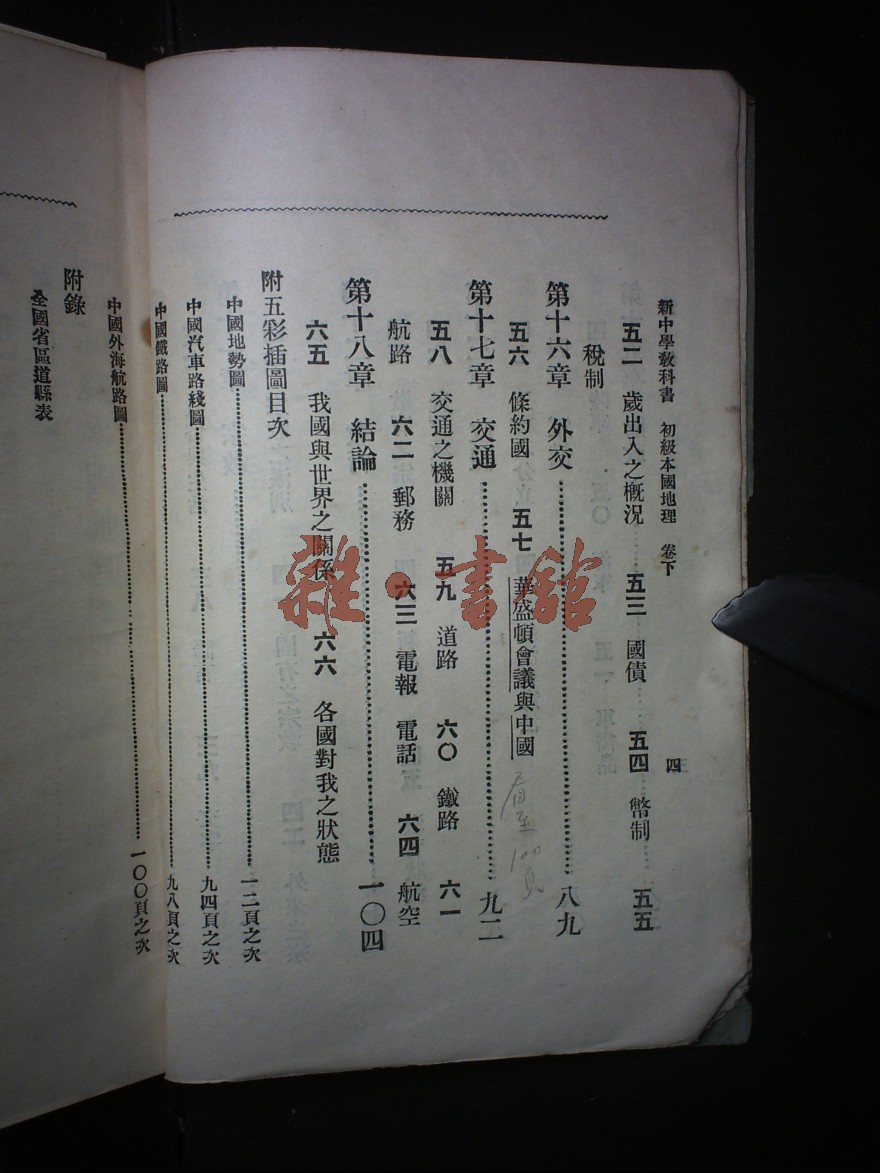 新中學敎科書　初級本國地理　卷下
四
五二　歲出入之槪況　五三　國債　五四　幣制　五五
稅制
第十六章　外交……八九
五六　條約國　五七　華盛頓會議與中國
看至100頁
第十七章　交通……九二
五八　交通之機關　五九　道路　六〇　鐵路　六一
航路　六二　郵務　六三　電報　電話　六四　航空
第十八章　結論……一〇四
六五　我國與世界之關係　六六　各國對我之狀態
附五彩插圖目次
中國地勢圖……一二頁之次
中國汽車路綫圖……九四頁之次
中國鐵路圖……九八頁之次
中國外海航路圖……一〇〇頁之次
附錄
全國省區道縣表
雜·書館